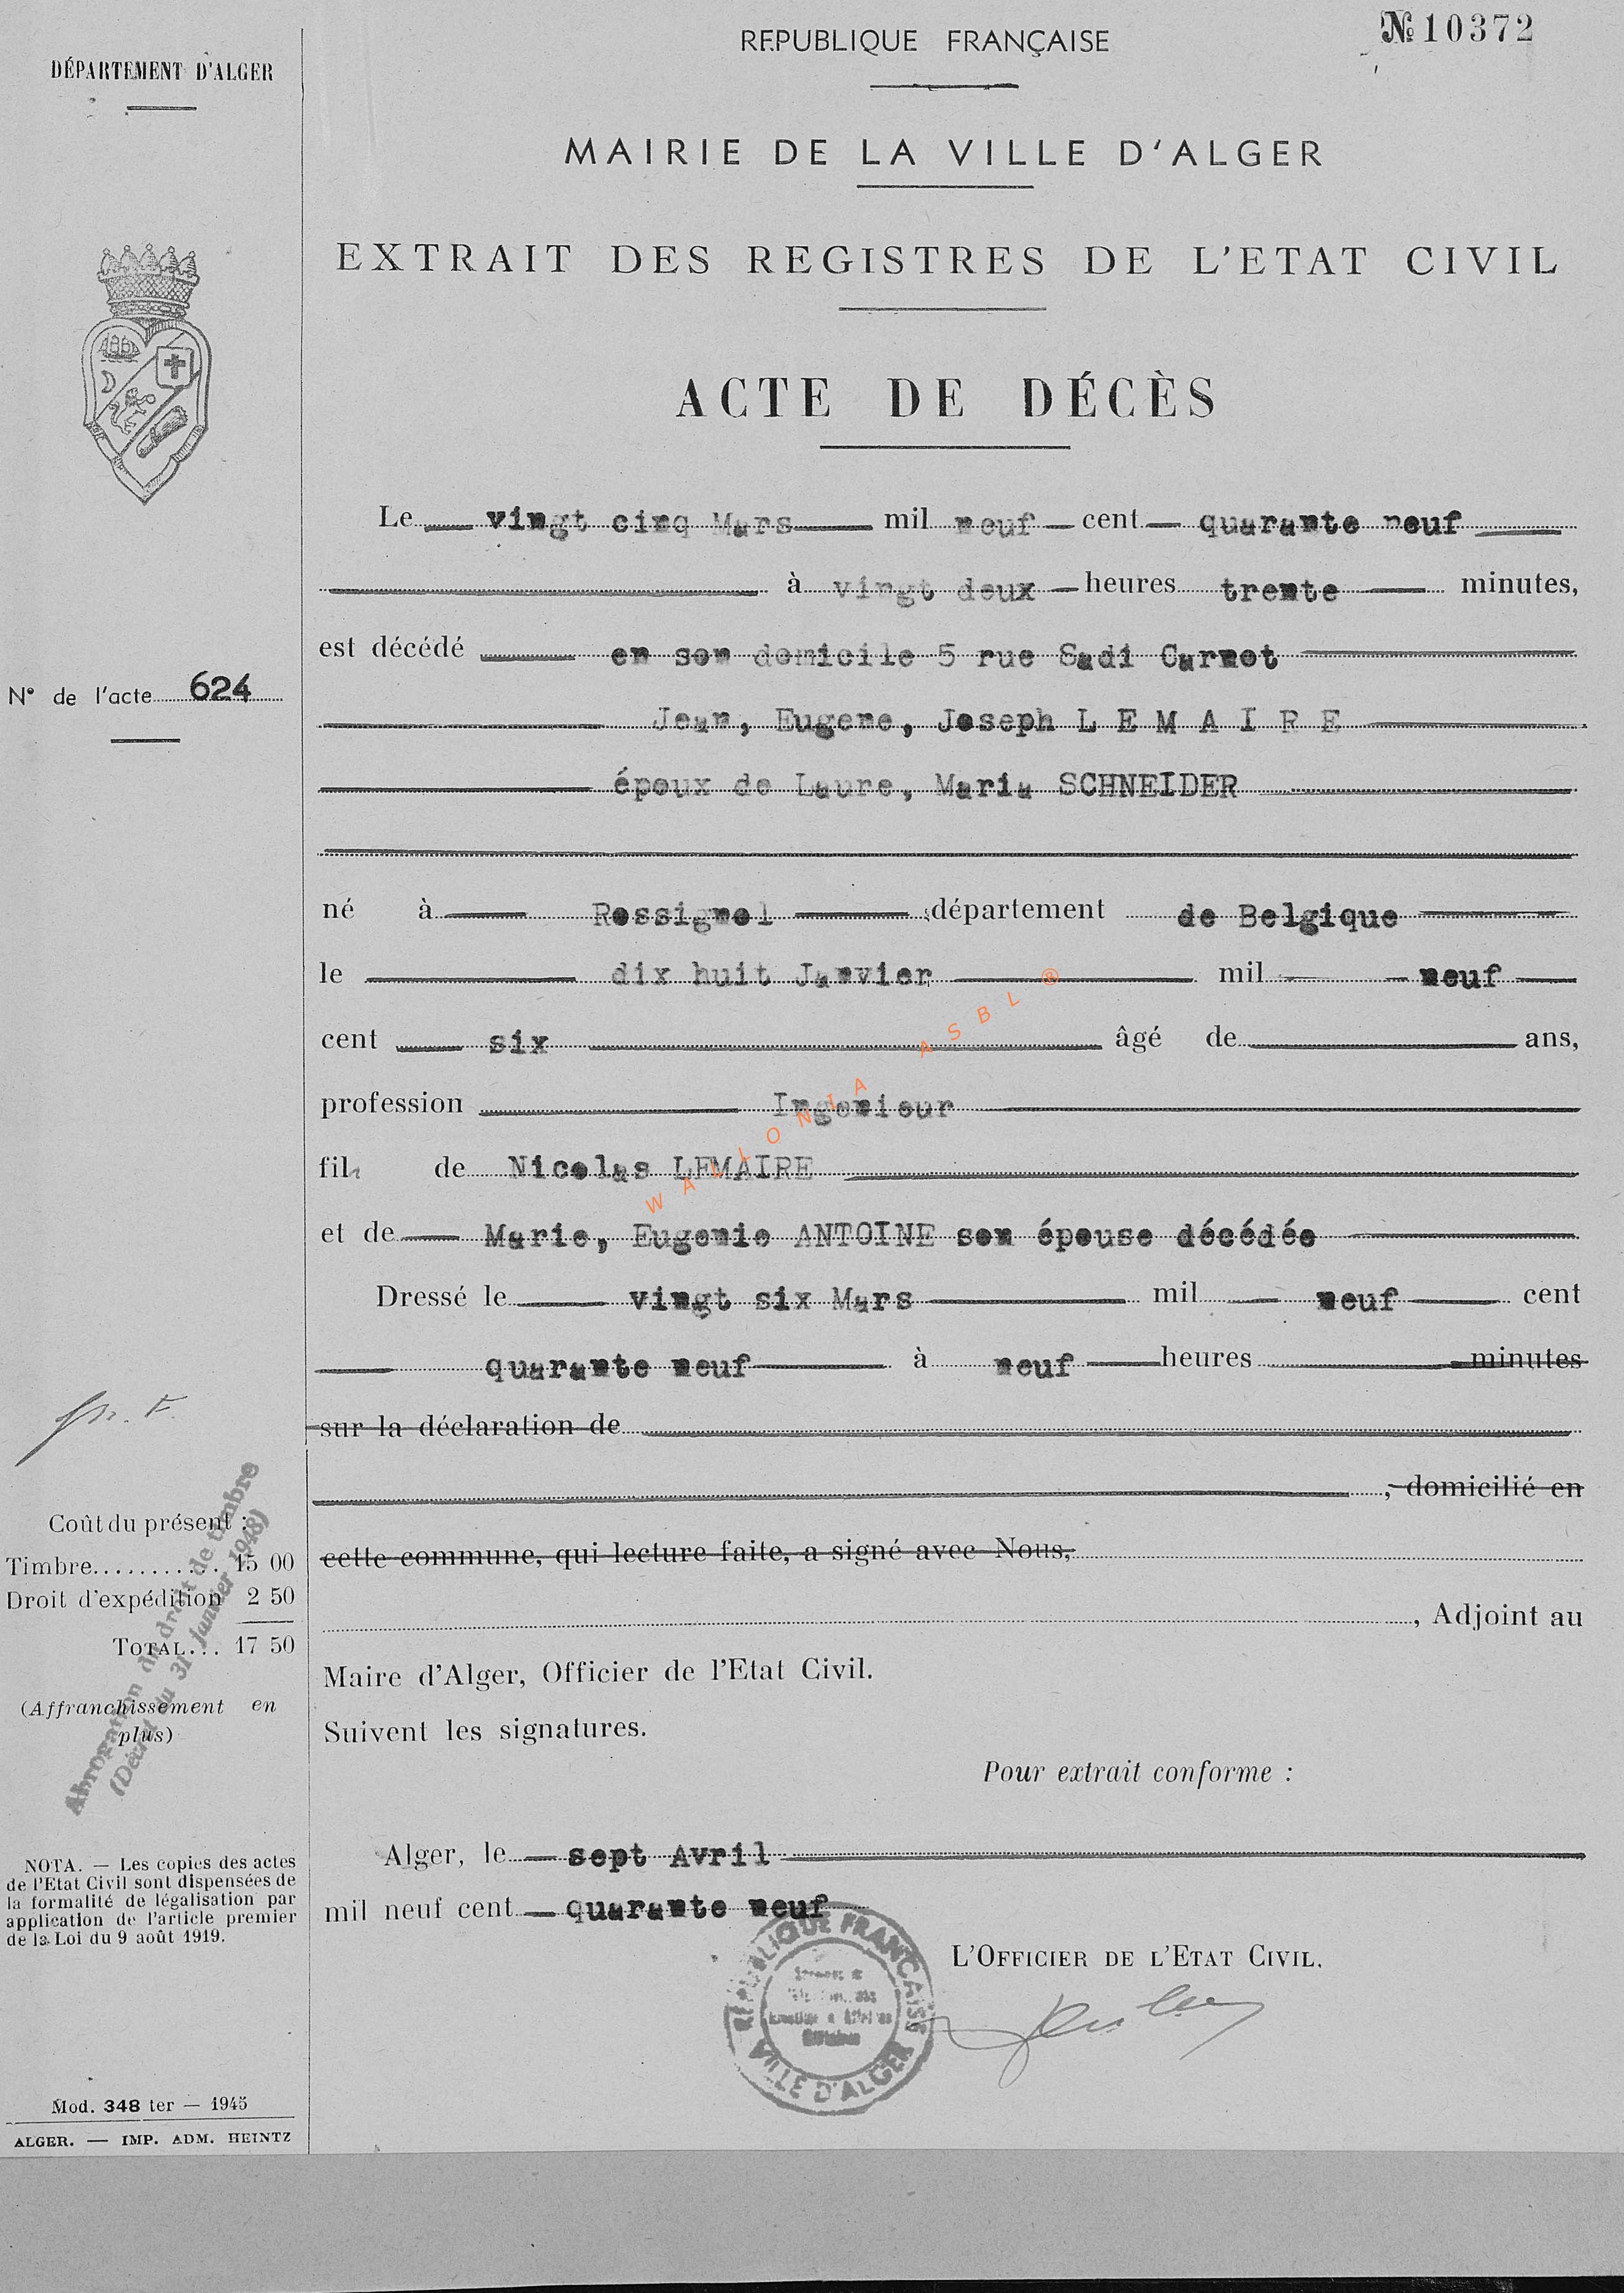 REPUBLIQUE FRANÇAISE
№ 10372
DÉPARTEMENT D'ALGER
MAIRIE DE LA VILLE D'ALGER
EXTRAIT DES REGISTRES DE L'ETAT CIVIL
ACTE DE DÉCÈS
Le vingt cinq Mars mil neuf cent quarante neuf
à vingt deux heures trente minutes,
est décédé en son domicile 5 rue Sadi Carnot
N° de l'acte 624
Jean, Eugene, Joseph L E M A I R E
époux de Laure, Maria SCHNEIDER
né à Rossignol département de Belgique
le dix huit Janvier mil neuf
cent six âgé de ans,
profession Ingenieur
fils de Nicolas LEMAIRE
et de Marie, Eugenie ANTOINE son épouse décédée
Dressé le vingt six Mars mil neuf cent
quarante neuf à neuf heures minutes
sur la déclaration de
, domicilié en
cette commune, qui lecture faite, a signé avec Nous,
, Adjoint au
Maire d'Alger, Officier de l'Etat Civil.
Suivent les signatures.
Pour extrait conforme :
Alger, le sept Avril
mil neuf cent quarante neuf
L'OFFICIER DE L'ETAT CIVIL.
Coût du présent :
Timbre........... 15 00
Droit d'expédition 2 50
TOTAL... 17 50
(Affranchissement en
plus)
Abrogation du droit de timbre
(Décret du 31 janvier 1948)
NOTA. — Les copies des actes
de l'Etat Civil sont dispensées de
la formalité de légalisation par
application de l'article premier
de la Loi du 9 août 1919.
Mod. 348 ter — 1945
ALGER. — IMP. ADM. HEINTZ
RÉPUBLIQUE FRANÇAISE
VILLE D'ALGER
WALLONIA ASBL ®